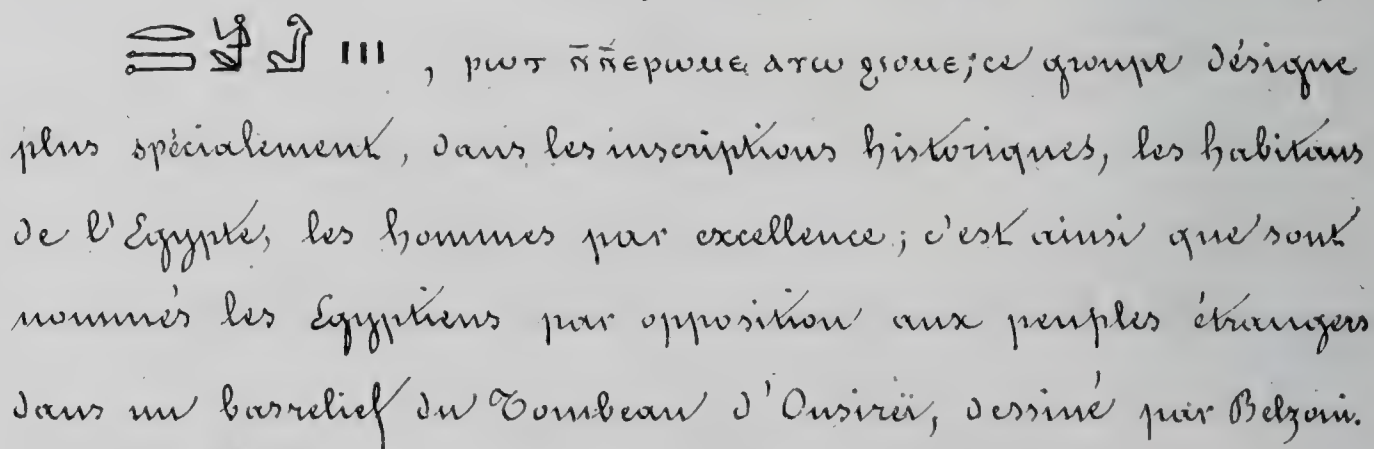 𓂋𓍿𓀀𓁐 III , ⲣⲱⲧ ⲛ̄ⲛ̄ⲉⲣⲱⲙⲉ ⲁⲩⲱ ϩⲓⲟⲙⲉ; ce groupe désigne
plus spécialement, dans les inscriptions historiques, les habitans
de l'Égypte, les hommes par excellence; c'est ainsi que sont
nommés les Égyptiens par opposition aux peuples étrangers
dans un basrelief du Tombeau d'Ousireï, dessiné par Belzoni.